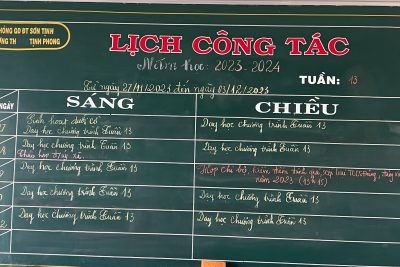 PHÒNG GD ĐT SƠN TỊNH
TỊNH PHONG
LỊCH CÔNG TÁC
Năm học: 2023-2024
TUẦN: 13
Từ ngày 27/11/2023 đến ngày 03/12/2023
NGÀY SÁNG CHIỀU
Sinh hoạt dưới cờ
Dạy học chương trình tuần 13
Dạy học chương trình tuần 13
Dạy học chương trình tuần 13
Dạy học chương trình tuần 13
Dạy học chương trình tuần 13
Họp Chi bộ, kiểm
năm 2023
Dạy học chương trình tuần 13
Dạy học chương trình tuần 13
Dạy học chương trình tuần 13
Dạy học chương trình tuần 13